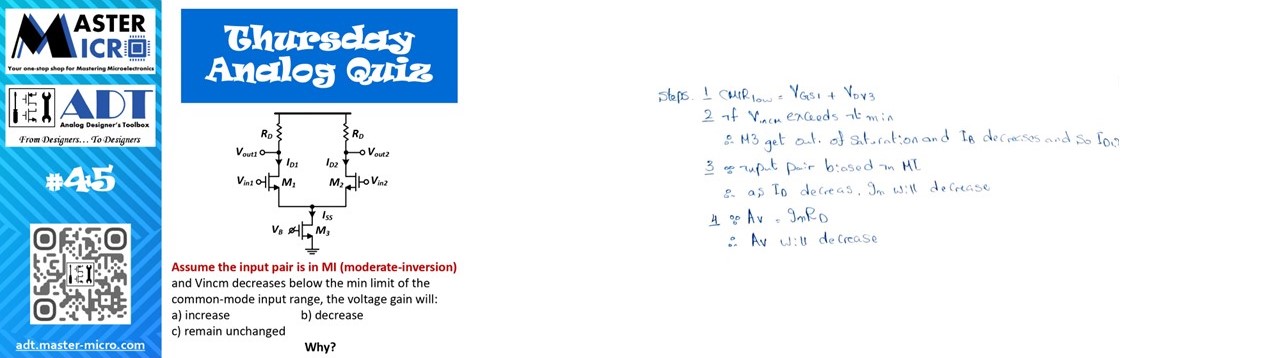 MASTER
MICRO
Your one-stop shop for Mastering Microelectronics
ADT
Analog Designer's Toolbox
From Designers... To Designers
#45
adt.master-micro.com
Thursday
Analog Quiz
RD RD
Vout1 Vout2
ID1 ID2
Vin1 M1 M2 Vin2
ISS
VB M3
Assume the input pair is in MI (moderate-inversion)
and Vincm decreases below the min limit of the
common-mode input range, the voltage gain will:
a) increase b) decrease
c) remain unchanged
Why?
Steps. 1 CMIRlow = VGS1 + VOV3
2 if Vincm exceeds it min
∴ M3 get out of Saturation and IB decreases and so ID1,2
3 ∵ input pair biased in MI
∴ as ID decreas, gm will decrease
4 ∵ Av = gmRD
∴ Av will decrease